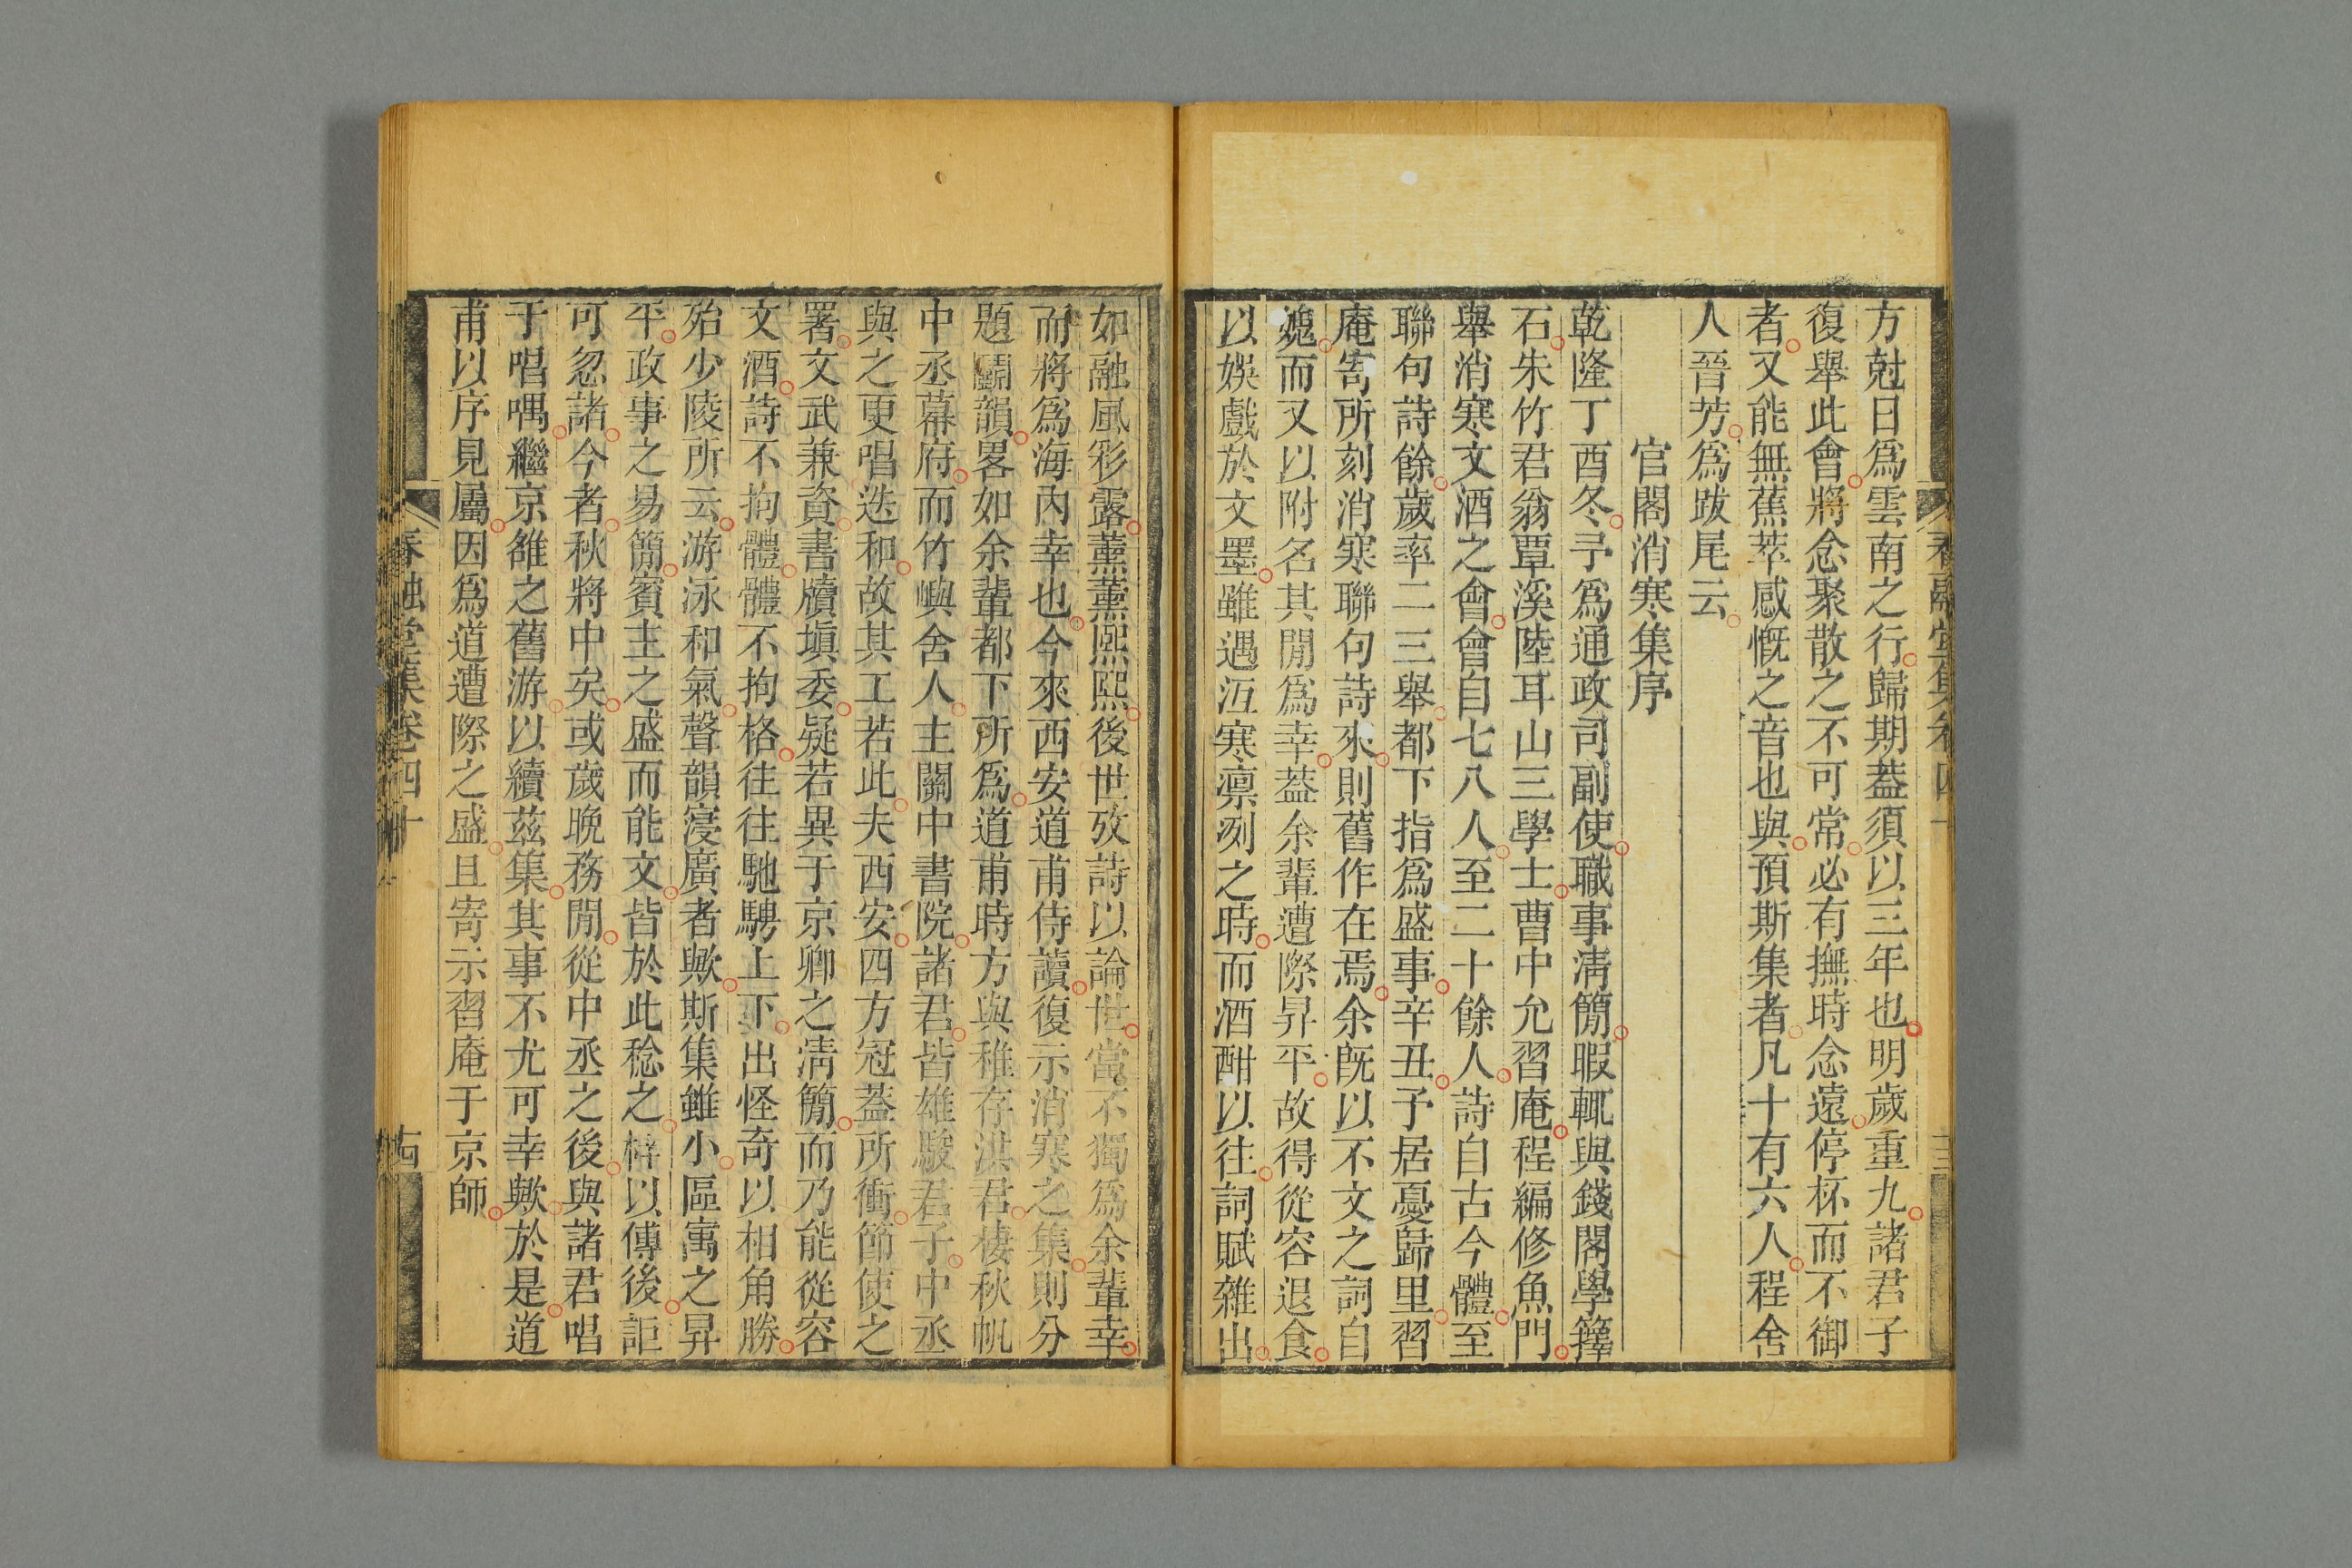 方尅日爲雲南之行歸期蓋須以三年也明歲重九諸君子
復舉此會將念聚散之不可常必有撫時念遠停杯而不御
者又能無蕉萃感慨之音也與預斯集者凡十有六人程舍
人晉芳爲跋尾云
官閣消寒集序
乾隆丁酉冬予爲通政司副使職事淸簡暇輒與錢閣學籜
石朱竹君翁覃溪陸耳山三學士曹中允習庵程編修魚門
舉消寒文酒之會會自七八人至二十餘人詩自古今體至
聯句詩餘歲率二三舉都下指爲盛事辛丑予居憂歸里習
庵寄所刻消寒聯句詩來則舊作在焉余旣以不文之詞自
媿而又以附名其閒爲幸蓋余輩遭際昇平故得從容退食
以娛戲於文墨雖遇沍寒凛冽之時而酒酣以往詞賦雜出
如融風彩露薰薰熙熙後世攷詩以論世當不獨爲余輩幸
而將爲海內幸也今來西安道甫侍讀復示消寒之集則分
題鬭韻畧如余輩都下所爲道甫時方與稚存洪君棲秋帆
中丞幕府而竹嶼舍人主關中書院諸君皆雄駿君子中丞
與之更唱迭和故其工若此夫西安四方冠蓋所衝節使之
署文武兼資書牘塡委疑若異于京卿之淸簡而乃能從容
文酒詩不拘體體不拘格往往馳騁上下出怪奇以相角勝
殆少陵所云游泳和氣聲韻寖廣者歟斯集雖小區寓之昇
平政事之易簡賓主之盛而能文皆於此稔之梓以傳後詎
可忽諸今者秋將中矣或歲晚務閒從中丞之後與諸君唱
于唱喁繼京雒之舊游以續茲集其事不尤可幸歟於是道
甫以序見屬因爲道遭際之盛且寄示習庵于京師
春融堂集卷四十